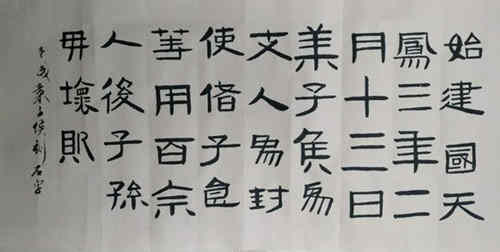 始建國天
鳳三年二
月十三日
萊子矦為
支人為封
使偖子食
等用百余
人後子孫
毋壞敗
萊子侯刻石